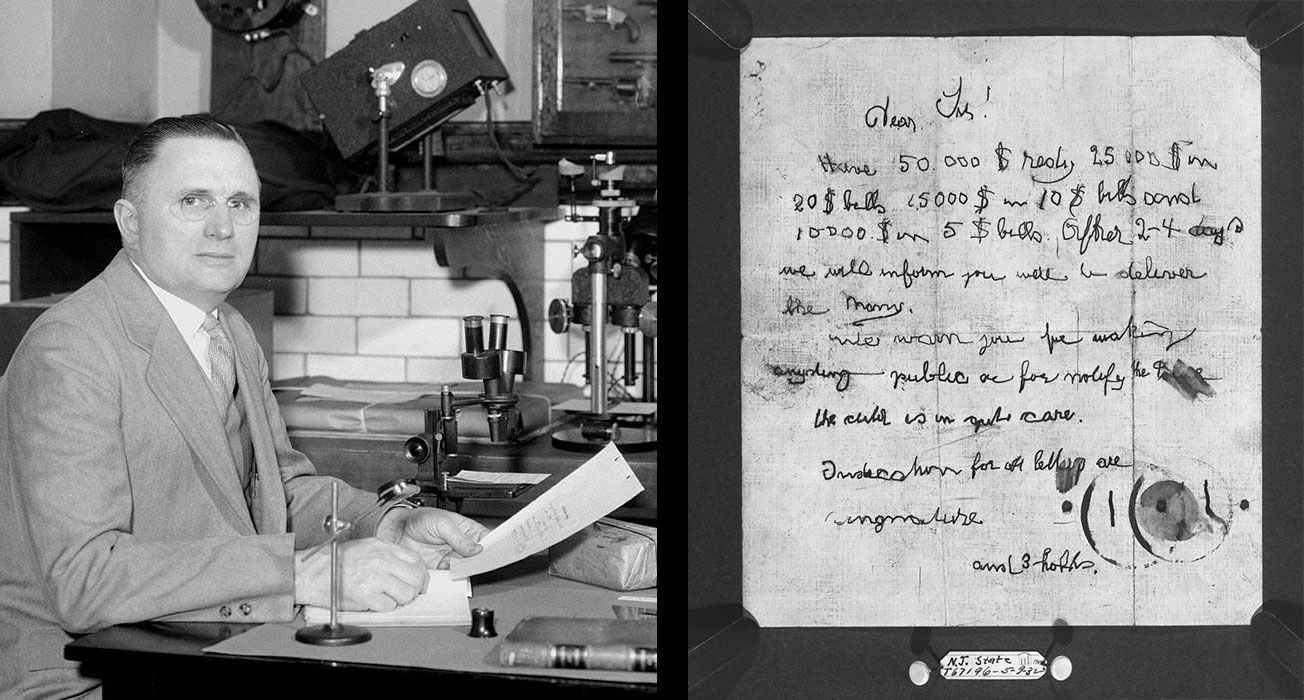 Dear Sir!
Have 50.000 $ redy 25000 $ in
20 $ bills 15000 $ in 10 $ bills and
10000 $ in 5 $ bills. After 2-4 days
we will inform you were to deliver
the Mony.
We warn you for making
anyding public or for notify the
the child is in gute care.
Indication for all letters are
singnature
and 3 holds.
N.J. State